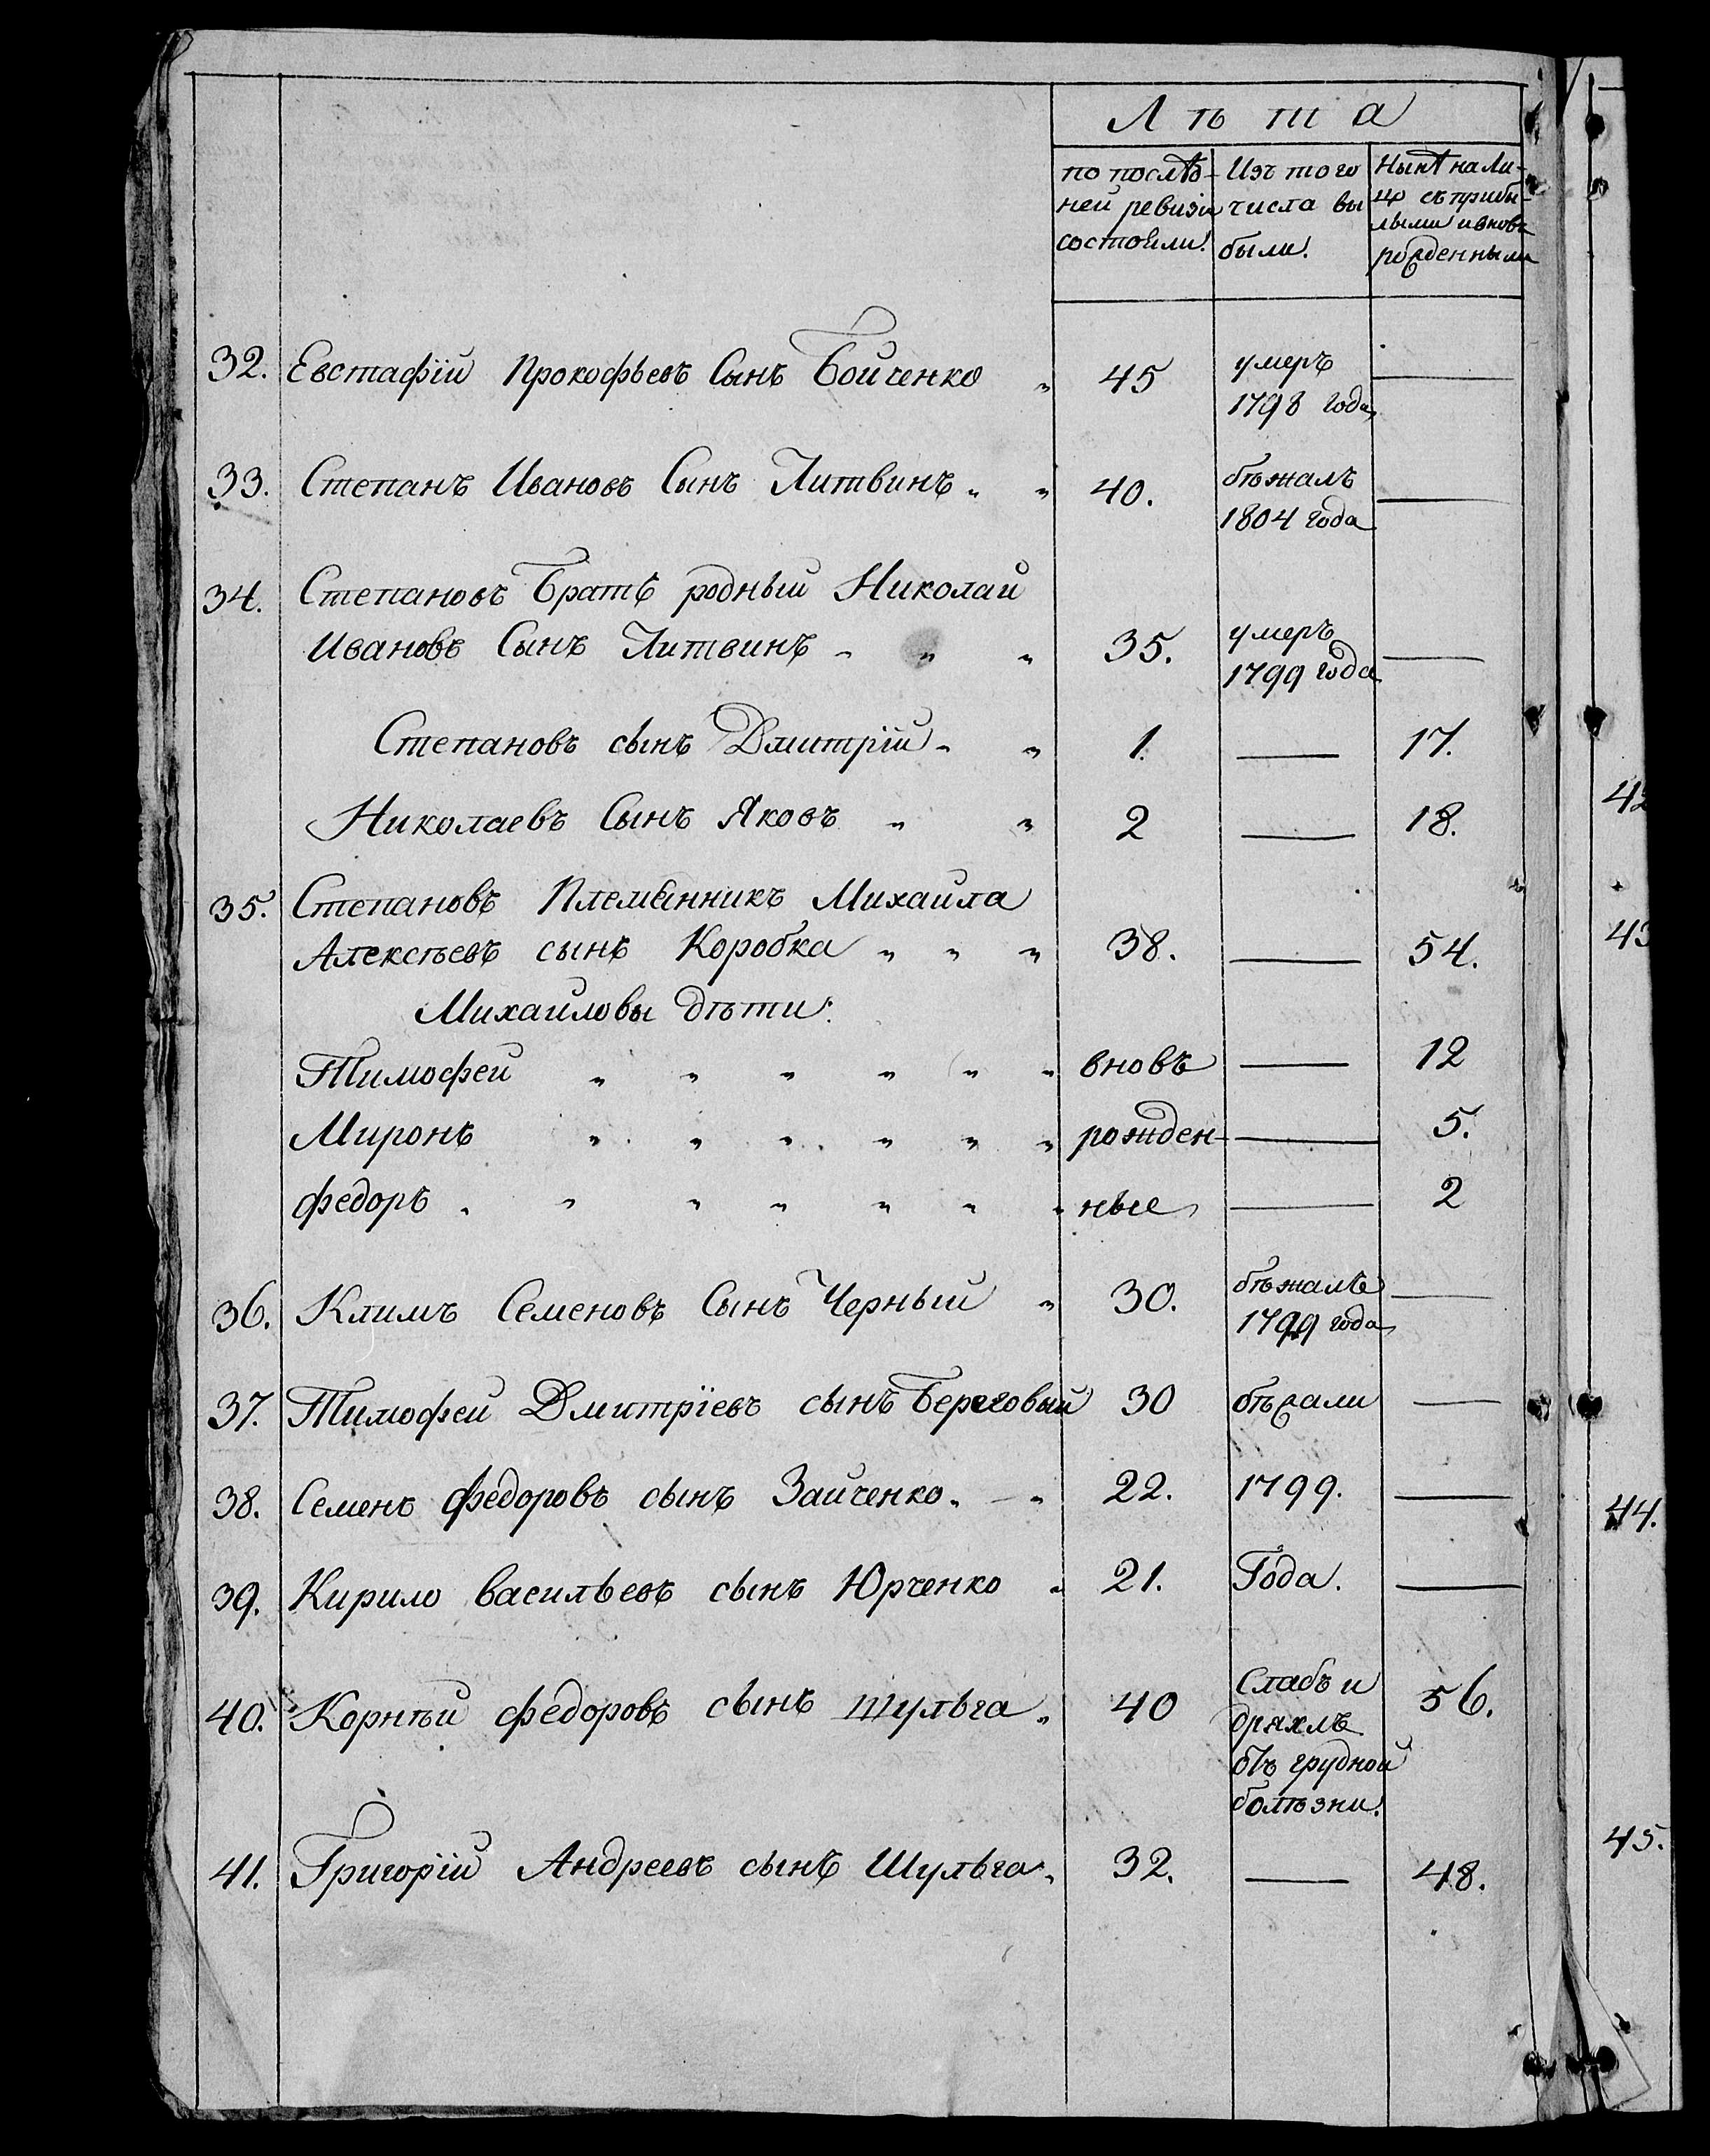 Лѣта
по послѣд- Изъ того Нынѣ на ли-
ней ревизіи числа вы цо съ прибы-
состояли. были. лыми и вновь
рожденными
32. Евстафій Прокофьевъ Сынъ Бойченко „ 45 умеръ —
1798 года
33. Степанъ Ивановъ Сынъ Литвинъ „ „ 40. бѣжалъ —
1804 года
34. Степановъ Братъ родный Николай
Ивановъ Сынъ Литвинъ „ „ „ 35. умеръ —
1799 года
Степановъ сынъ Дмитрій „ „ 1. — 17.
Николаевъ Сынъ Яковъ „ „ 2 — 18.
35. Степановъ Племянникъ Михайла
Алексѣевъ сынъ Коробка „ „ „ 38. — 54.
Михайловы дѣти:
Тимофей „ „ „ „ „ „ вновь — 12
Миронъ „ „ „ „ „ „ рожден- — 5.
Федоръ „ „ „ „ „ „ „ ные — 2
36. Климъ Семеновъ Сынъ Черный „ 30. бѣжалъ —
1799 года
37. Тимофей Дмитріевъ сынъ Береговый 30 бѣжали —
38. Семенъ Федоровъ сынъ Зайченко „ „ 22. 1799. —
39. Кирило Васильевъ сынъ Юрченко „ 21. Года. —
40. Корнѣй Федоровъ сынъ Шульга „ 40 Слабъ и 56.
дряхлъ
въ грудной
болѣзни.
41. Григорій Андреевъ сынъ Шульга „ 32. — 48.
42
43
44.
45.